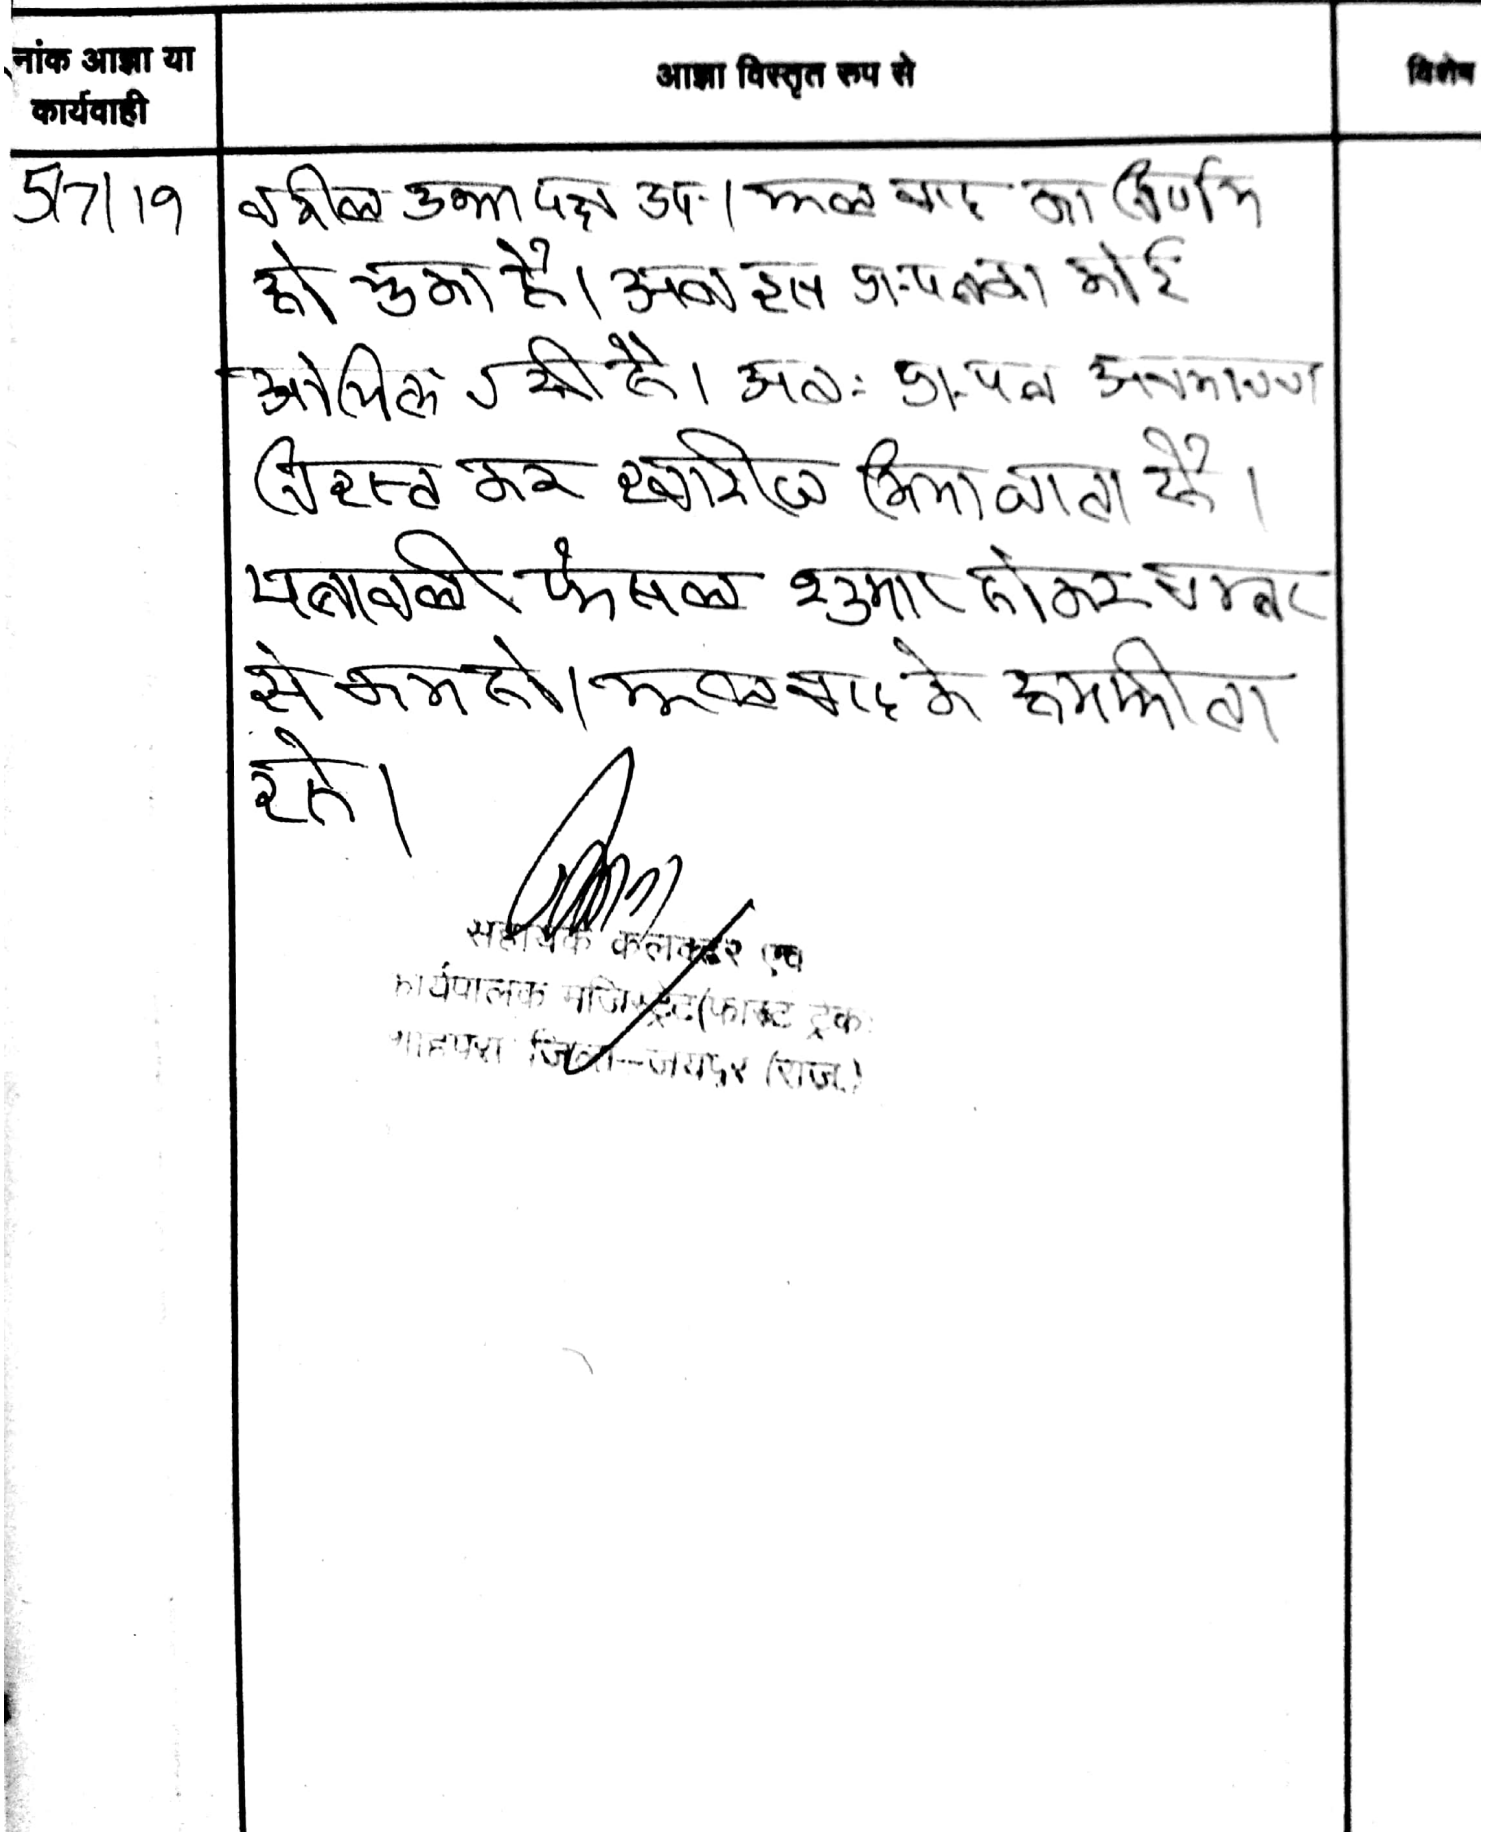 नांक आज्ञा या
कार्यवाही
आज्ञा विस्तृत रूप से
विशेष
5/7/19
वकील उभय पक्ष उप.। मूल वाद का निर्णय
हो चुका है। अब इस प्रा.पत्र का कोई
औचित्य नहीं है। अतः प्रा.पत्र
निरस्त कर खारिज किया जाता है।
पत्रावली फैसल शुमार होकर नम्बर
से कम हो। मूल वाद के
रहे।
सहायक कलक्टर एवं
कार्यपालक मजिस्ट्रेट (फास्ट ट्रेक
शाहपुरा जिला-जयपुर (राज.)